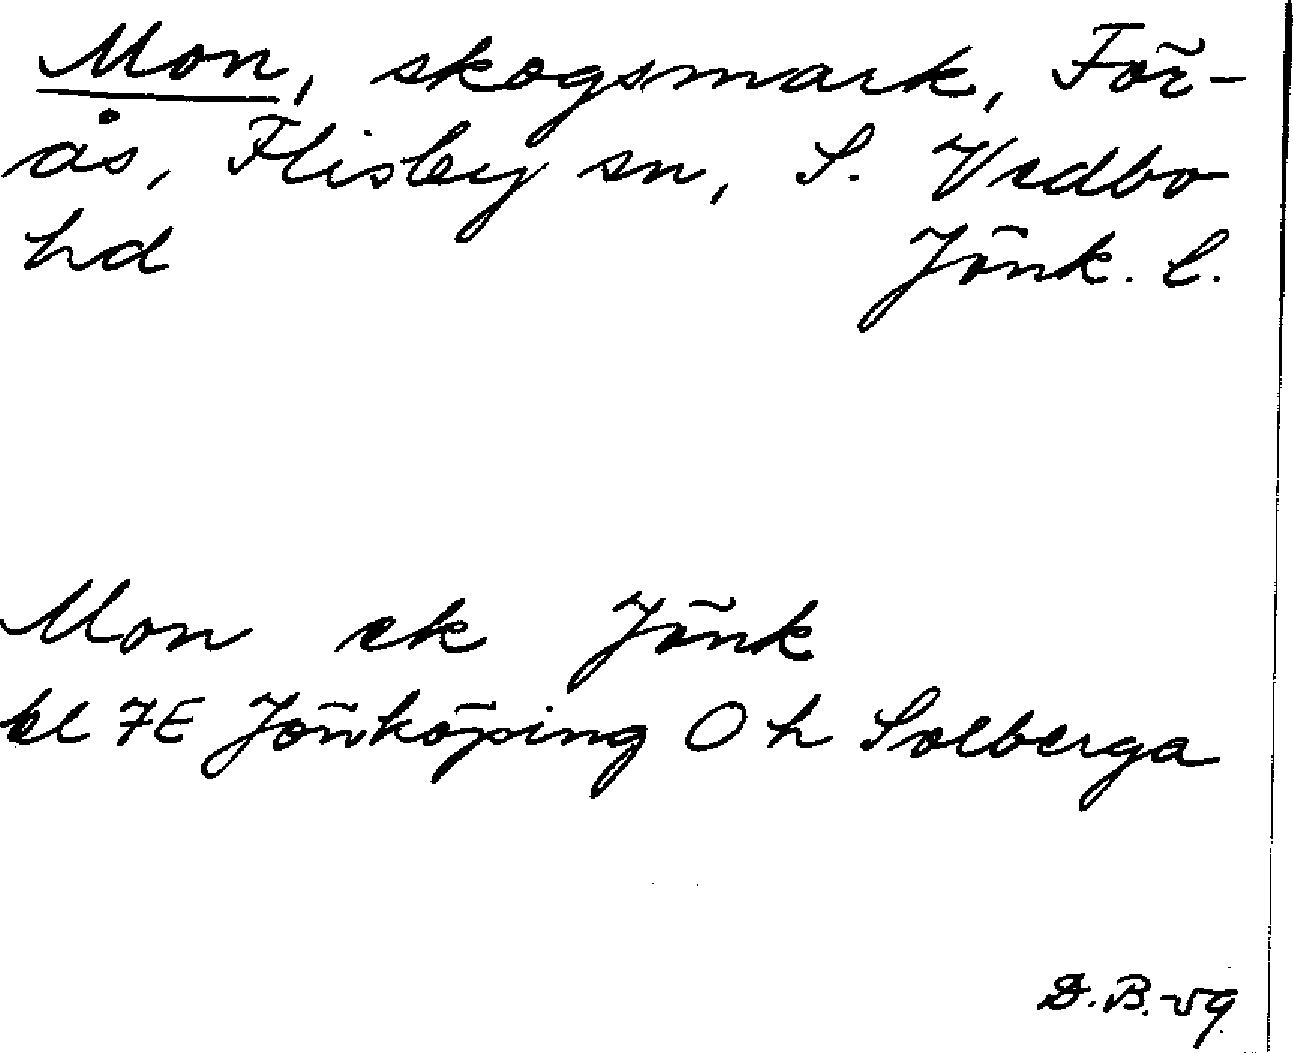 Mon, skogsmark, För-
ås, Flisby sn, S. Vedbo
hd Jönk. l.
Mon ek Jönk
bl 7E Jönköping Oh Solberga
D.B.-59.